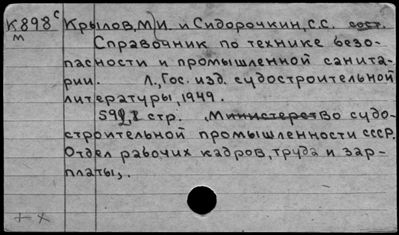 К898с Крылов, М.И. и Сидорочкин, С.С. сост.
м Справочник по технике безо-
пасности и промышленной санита-
рии. Л., Гос. изд. судостроительной
литературы, 1949.
стр. Министерство судо-
строительной промышленности СССР.
Отдел рабочих кадров, труда и зар-
платы,.